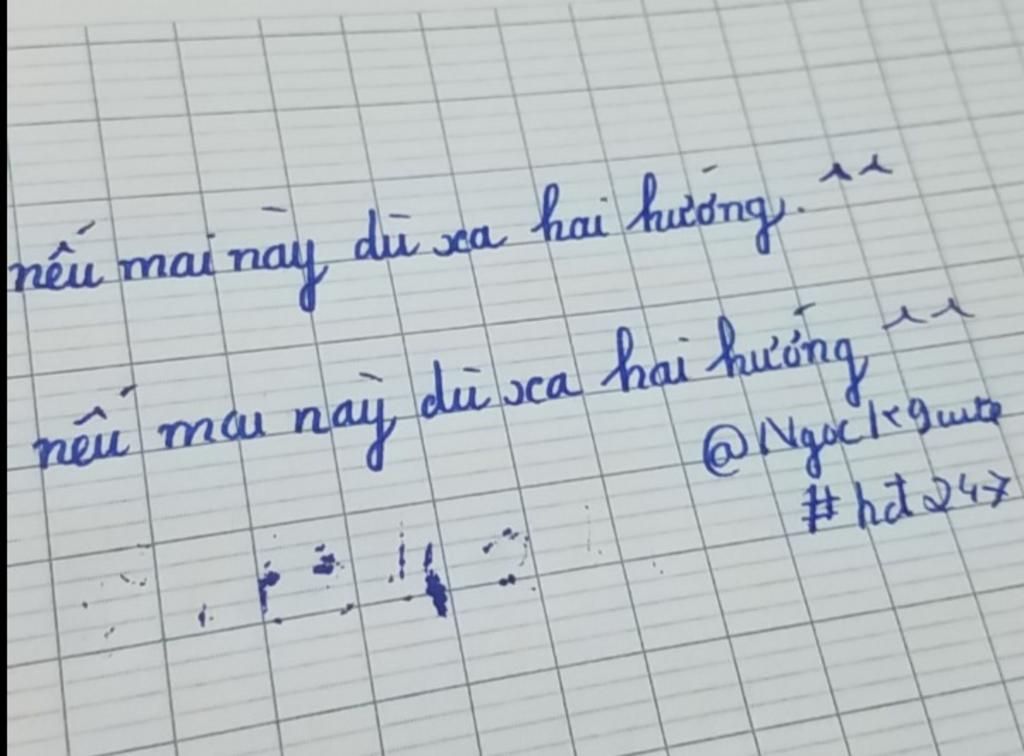 nếu mai này dù xa hai hướng. ^^
nếu mai này dù xa hai hướng ^^
#hđ247